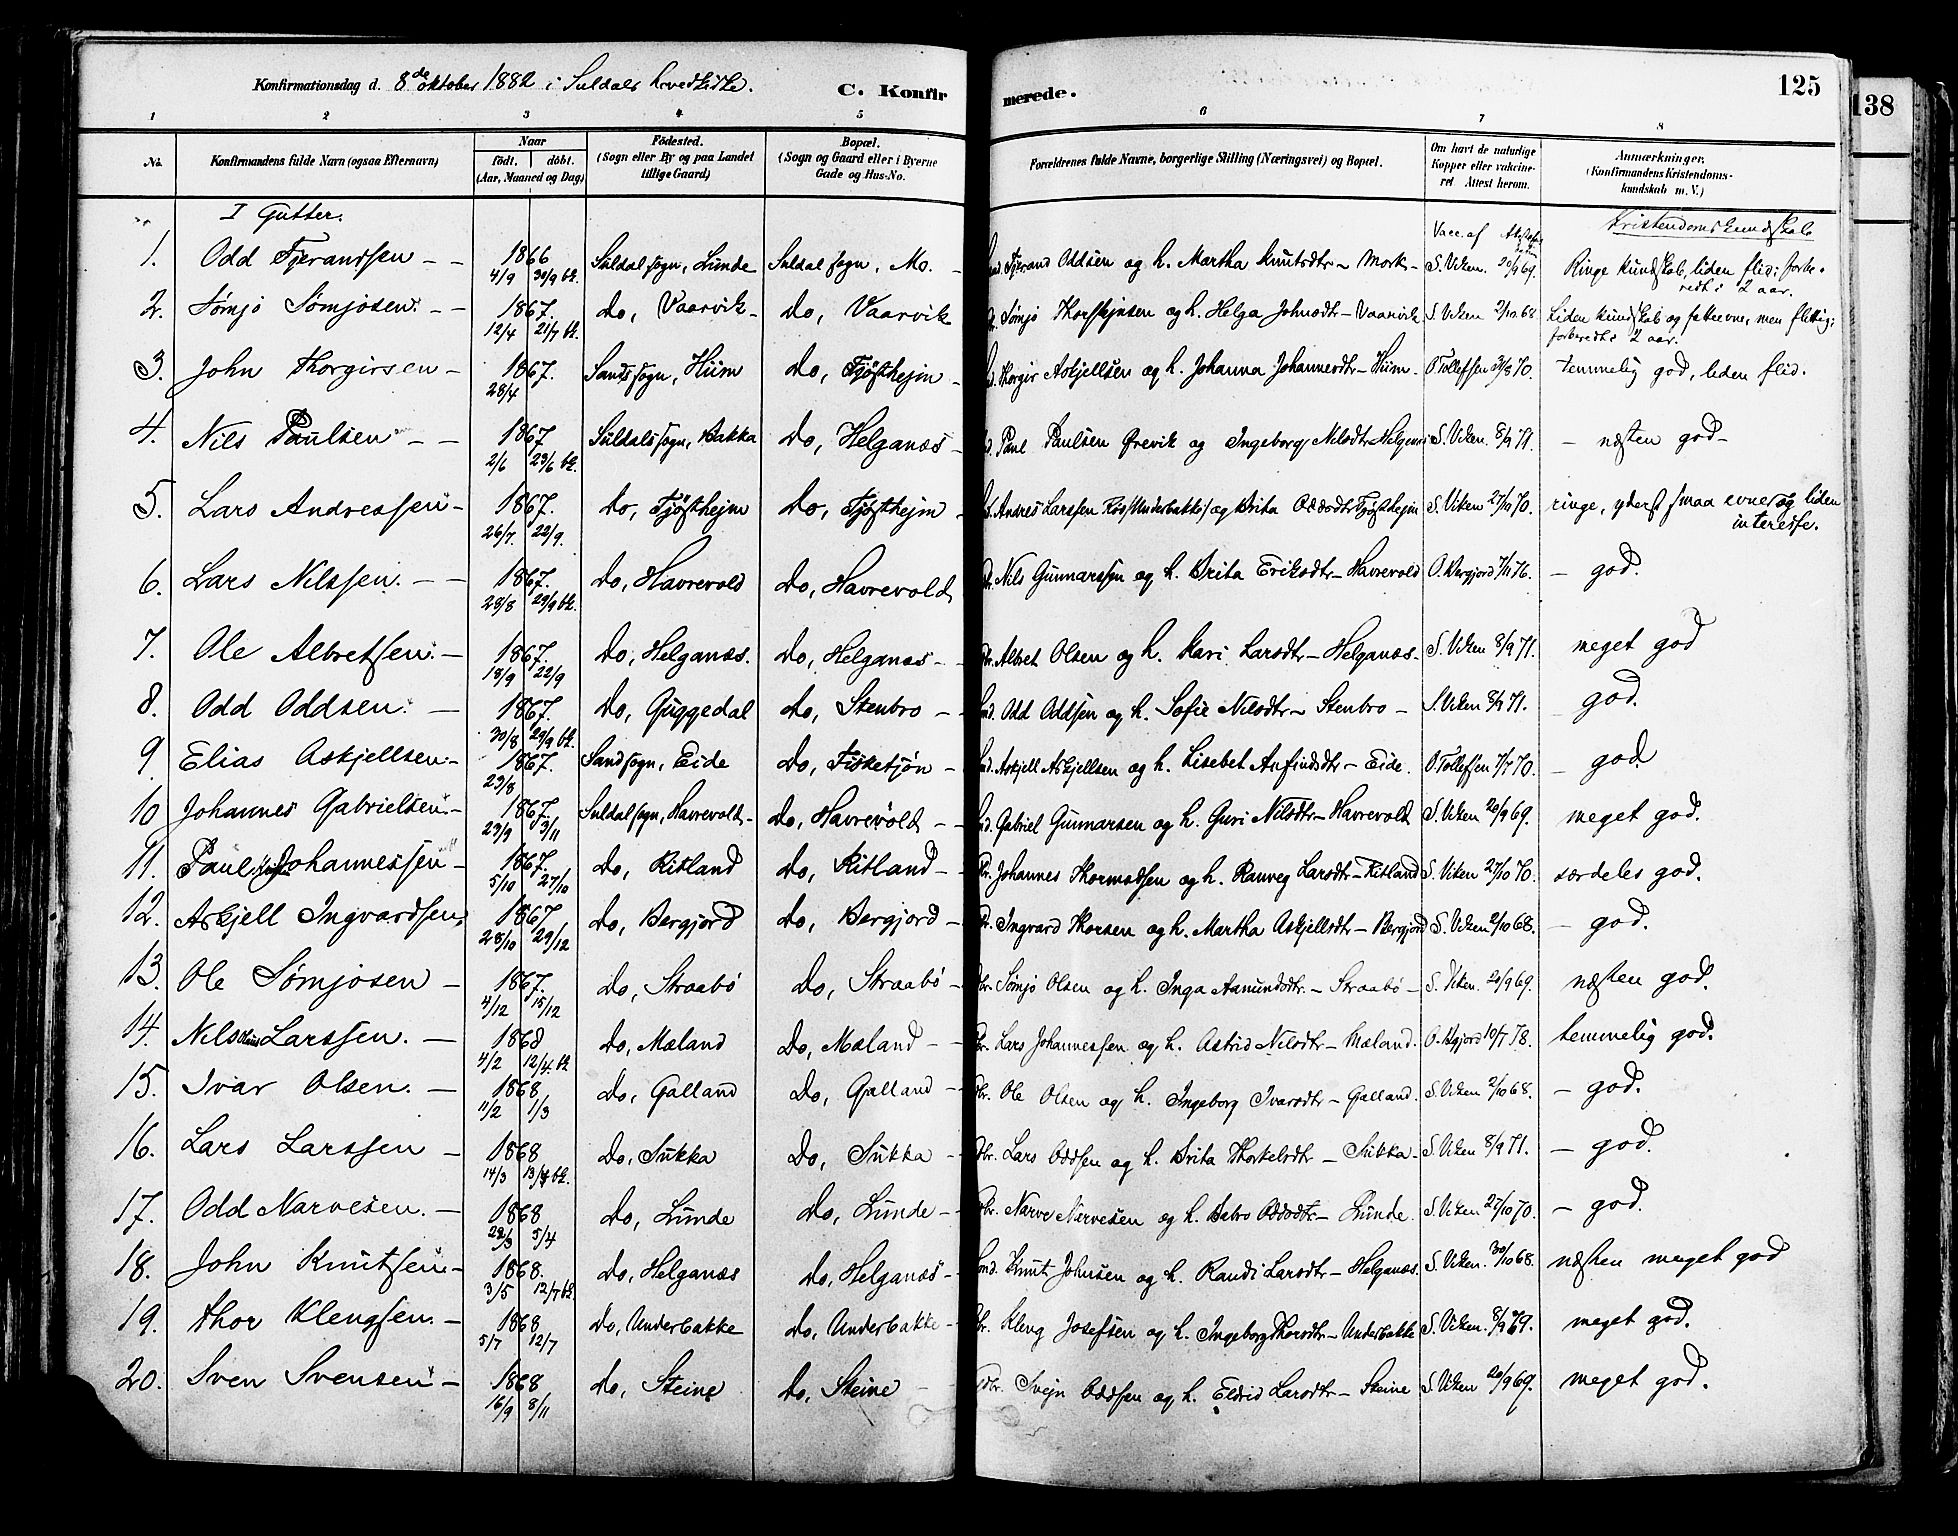 Konfirmationsdag d. 8de oktober 1882 i Suldals hovedkirke. C. Konfirmerede. 125
138
1 2 3 4 5 6 7 8
No. Konfirmandens fulde Navn (ogsaa Efternavn) Naar födt. döbt. (Aar, Maaned og Dag) Födested. (Sogn eller By og paa Landet tillige Gaard) Bopæl. (Sogn og Gaard eller i Byerne Gade og Hus-No. Forældrenes fulde Navne, borgerlige Stilling (Næringsvei) og Bopæl. Om havt de naturlige Kopper eller vakcineret Attest herom. Anmærkninger. (Konfirmandens Kristendomskundskab m. V.)
I Gutter. Vacc. af Kristendomskundskab
1. Odd Tjerandsen 1866 4/9 30/9 bl. Suldal sogn, Lunde Suldal sogn, Mo. Tjerand Oddsen og h. Martha Knutsdtr – Mork S. Viken. 20/9 69. Ringe kundskab, liden flid; forberedt i 2 aar.
2. Sømjo Sømjosen. 1867. 12/4 21/7 bl. do, Vaarvik do, Vaarvik Sømjo Thorskjnsen og h. Helga Johnsdtr – Vaarvik S. Viken 2/10 68 Liden kundskab og fatteevne, men flittig; forberedt i 2 aar.
3. John Thorgirsen 1867. 28/4 Sands sogn, Hiim do, Tjøsthejm Thorgir Askjellsen og h. Johanna Johannesdtr – Hiim O. Tollefsen 31/8 70. temmelig god, liden flid.
4. Nils Paulsen 1867 2/6 23/6 bl. Suldals sogn, Bakka do, Helganæs Paul Paulsen Ørevik og Ingeborg Nilsdtr Helganæs S. Viken. 8/9 71. – næsten god –
5. Lars Andreassen 1867. 26/7. 22/9. do, Tjøsthejm do, Tjøsthejm Andres Larssen Ros (Underbakke) og Brita Oddsdtr Tjøsthejm S. Viken 27/10 70. ringe, yderst smaa evner og liden interesse.
6. Lars Nilssen. 1867. 28/8 29/9 bl. do, Havrevold do, Havrevold Nils Gunnarssen og h. Brita Eriksdtr – Havrevold O. Bergjord 7/11 76. – god.
7. Ole Albretsen. 1867. 18/9 22/9 do, Helganæs. do, Helganæs Albret Olsen og h. Kari Larsdtr – Helganæs S. Viken 8/9 71. meget god
8. Odd Oddsen. 1867. 30/8 29/9 bl. do, Guggedal do, Stenbro Odd Oddsen og h. Sofie Nilsdtr – Stenbro S. Viken 8/9 71. god.
9. Elias Askjellsen. 1867. 23/8 Sand sogn, Eide do, Fisketjøn Askjell Askjellsen og h. Lisebet Anfindsdtr – Eide. O. Tollefsen 7/7 70. – god
10 Johannes Gabrielsen. 1867. 29/9 3/11 Suldal sogn, Havrevold do, Havrevold Gabriel Gunnarsen og h. Guri Nilsdtr – Havrevold S. Viken 20/9 69. meget god.
11. Paul Johannessen 1867. 5/10 27/10 do, Ritland do, Ritland Johannes Thormodsen og h. Ranveg Larsdtr – Ritland S. Viken 27/10 70. særdeles god.
12. Askjell Ingvardsen, 1867 28/10 29/12 do, Bergjord do, Bergjord Ingvard Thorsen og h. Martha Askjellsdtr – Bergjord S. Viken 2/10 68. – god.
13. Ole Sømjosen 1867. 4/12 15/12 do, Straabø do, Straabø Sømjo Olsen og h. Inga Aamundsdtr. – Straabø S. Viken. 20/9 69. næsten god.
14. Nils Larssen. 1868 4/2 12/4. bl do, Mæland do, Mæland Lars Johannessen og h. Astrid Nilsdtr – Mæland. 10/7 78. temmelig god.
15. Ivar Olsen. 1868 11/2 1/3 do, Galland do, Galland Ole Olsen og h. Ingeborg Ivarsdtr – Galland. S. Viken 2/10 68. – god.
16. Lars Larssen 1868 14/3 13/4 bl. do, Sukka do, Sukka Lars Oddsen og h. Brita Thorkelsdtr – Sukka S. Viken 8/9 71. – god.
17. Odd Narvesen. 1868 22/3 5/4 do, Lunde do, Lunde Narve Narvesen og h. Babro Oddsdtr – Lunde. S. Viken. 27/10 70. – god.
18. John Knutsen. 1868. 3/5 12/7 bl. do, Helganæs do, Helganæs Knut Johnsen og h. Randi Larsdtr – Helganæs. S. Viken. 30/10 68. næsten meget god
19. Thor Klengsen. 1868 5/7 12/7 do, Underbakke do, Underbakke Kleng Josefsen og h. Ingeborg Thorsdtr – Underbakke S. Viken. 8/9 69. meget god.
20. Sven Svensen 1868 16/9 8/11 do, Steine do, Steine Svejn Oddsen og h. Eldrid Larsdtr – Steine S. Viken 20/9 69. meget god.